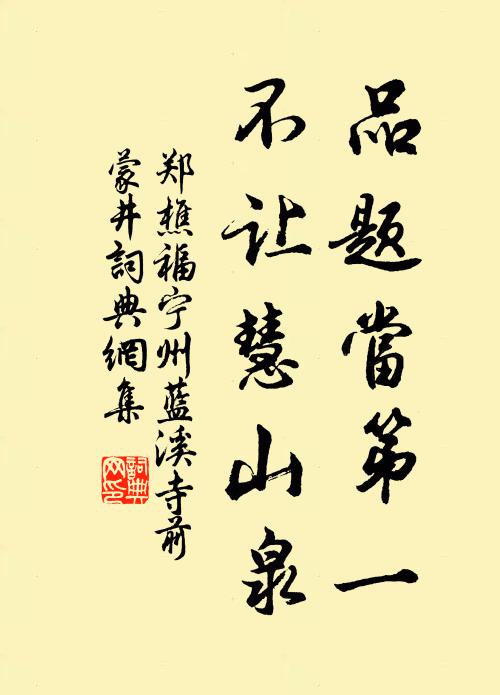 品题當第一
不让慧山泉
郑樵福宁州蓝溪寺前
蒙井詞典網集
詞典
网印